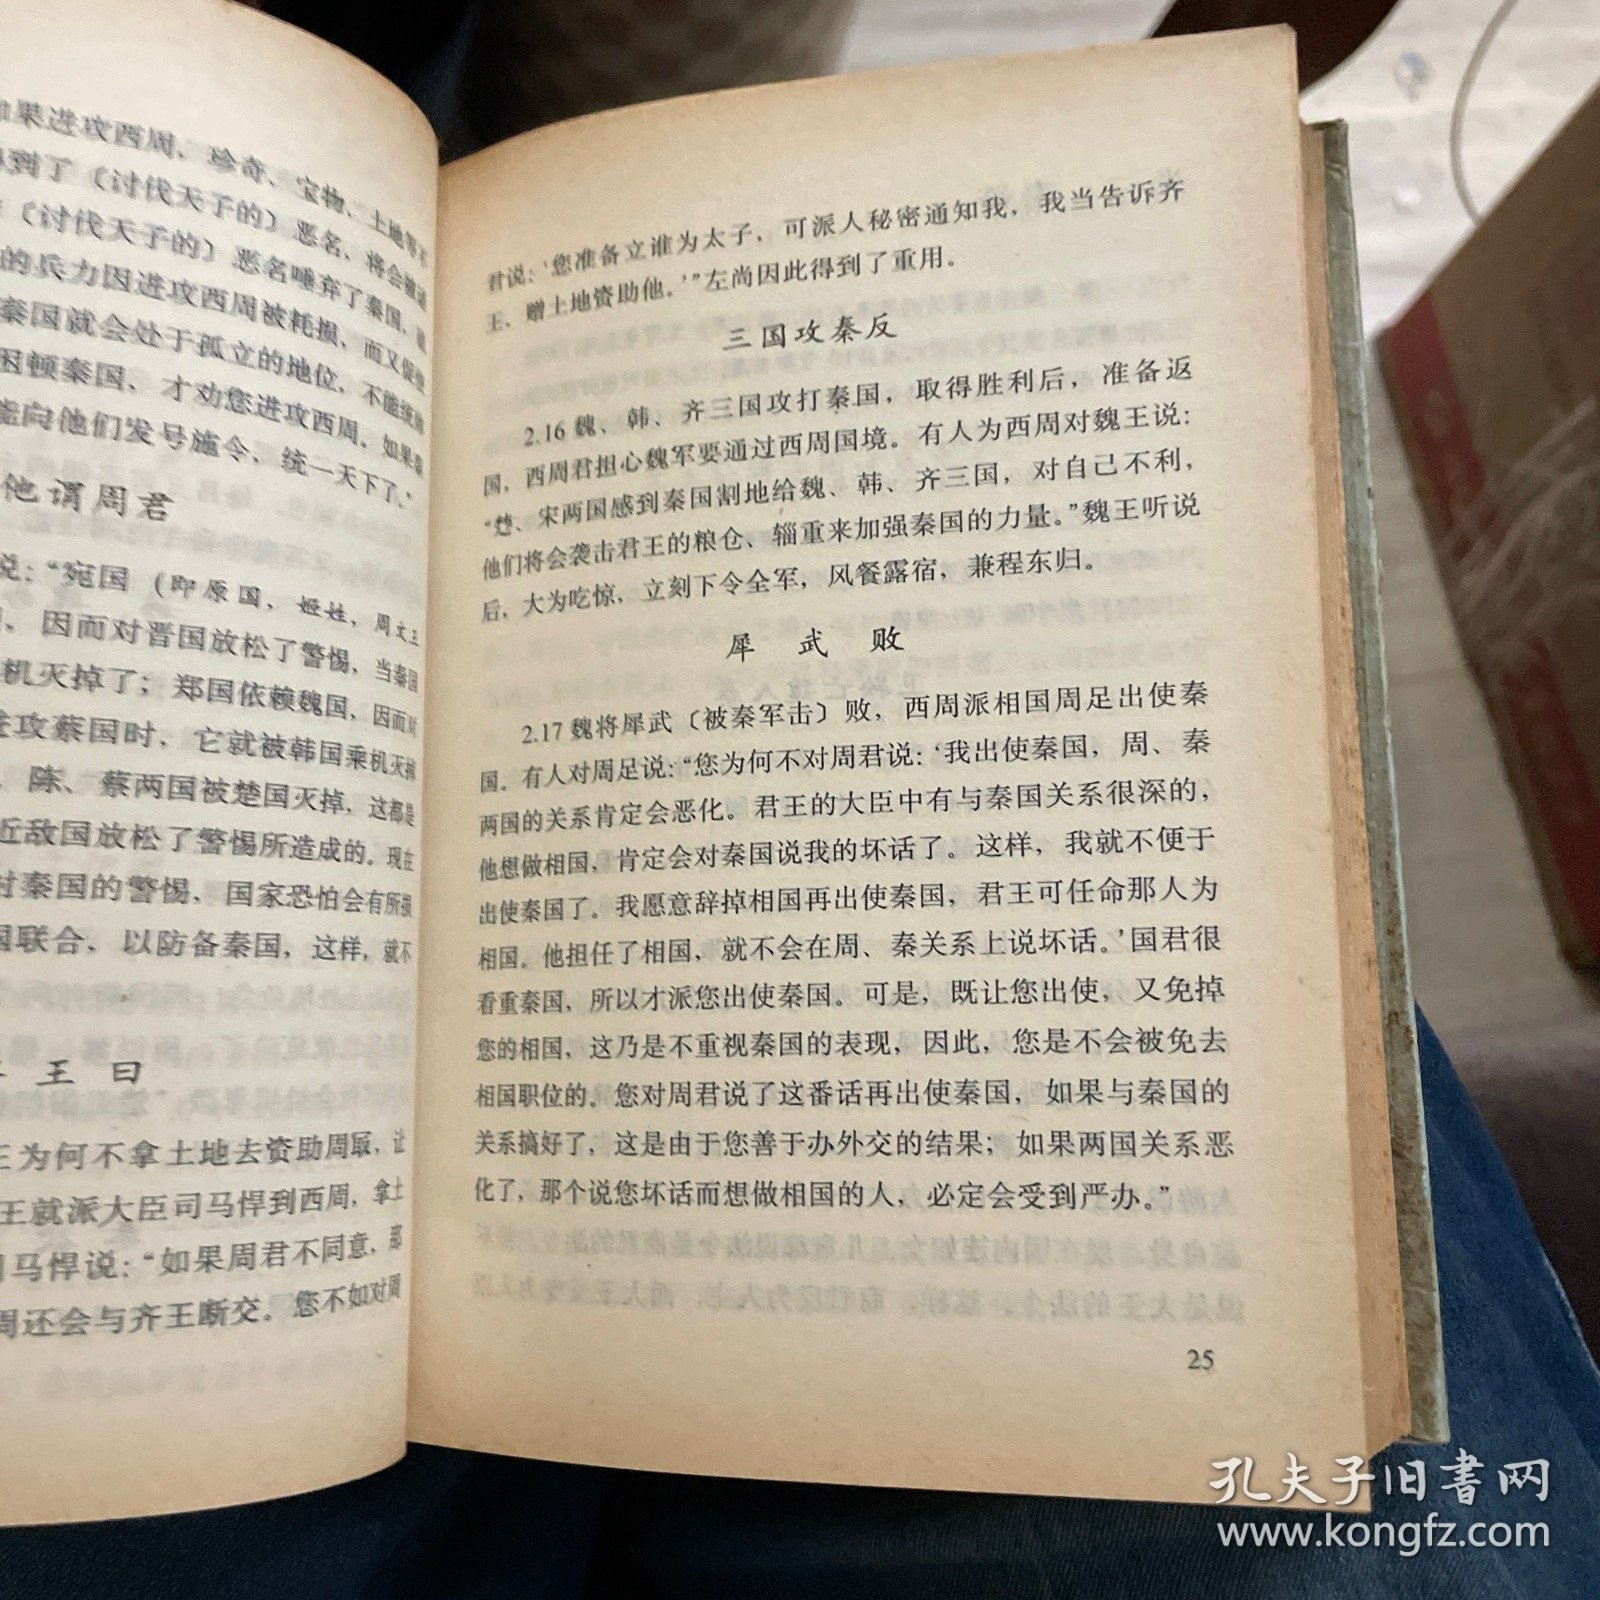 如果进攻西周、珍奇、宝物、土地等不
得到了（讨伐天子的）恶名、将会被
（讨伐天子的）恶名唾弃了秦国、
的兵力因进攻西周被耗损，而又
秦国就会处于孤立的地位，不能统
困顿秦国，才劝您进攻西周。如果
能向他们发号施令，统一天下了。”
他谓周君
说：“宛国（即原国，姬姓，周文王
，因而对晋国放松了警惕，当秦国
机灭掉了；郑国依赖魏国，因而对
进攻蔡国时，它就被韩国乘机灭掉
，陈、蔡两国被楚国灭掉，这都是
近敌国放松了警惕所造成的。现在
对秦国的警惕，国家恐怕会有所损
国联合，以防备秦国，这样，就不
王曰
王为何不拿土地去资助周最，让
王就派大臣司马悍到西周，拿土
司马悍说：“如果周君不同意，那
周还会与齐王断交。您不如对周
君说：‘您准备立谁为太子，可派人秘密通知我，我当告诉齐
王、赠土地资助他。’”左尚因此得到了重用。
三国攻秦反
2.16 魏、韩、齐三国攻打秦国，取得胜利后，准备返
国，西周君担心魏军要通过西周国境。有人为西周对魏王说：
“楚、宋两国感到秦国割地给魏、韩、齐三国，对自己不利，
他们将会袭击君王的粮仓、辎重来加强秦国的力量。”魏王听说
后，大为吃惊，立刻下令全军，风餐露宿，兼程东归。
犀武败
2.17 魏将犀武〔被秦军击〕败，西周派相国周足出使秦
国。有人对周足说：“您为何不对周君说：‘我出使秦国，周、秦
两国的关系肯定会恶化。君王的大臣中有与秦国关系很深的，
他想做相国，肯定会对秦国说我的坏话了。这样，我就不便于
出使秦国了。我愿意辞掉相国再出使秦国，君王可任命那人为
相国。他担任了相国，就不会在周、秦关系上说坏话。’国君很
看重秦国，所以才派您出使秦国。可是，既让您出使，又免掉
您的相国，这乃是不重视秦国的表现，因此，您是不会被免去
相国职位的。您对周君说了这番话再出使秦国，如果与秦国的
关系搞好了，这是由于您善于办外交的结果；如果两国关系恶
化了，那个说您坏话而想做相国的人，必定会受到严办。”
25
孔夫子旧书网
www.kongfz.com